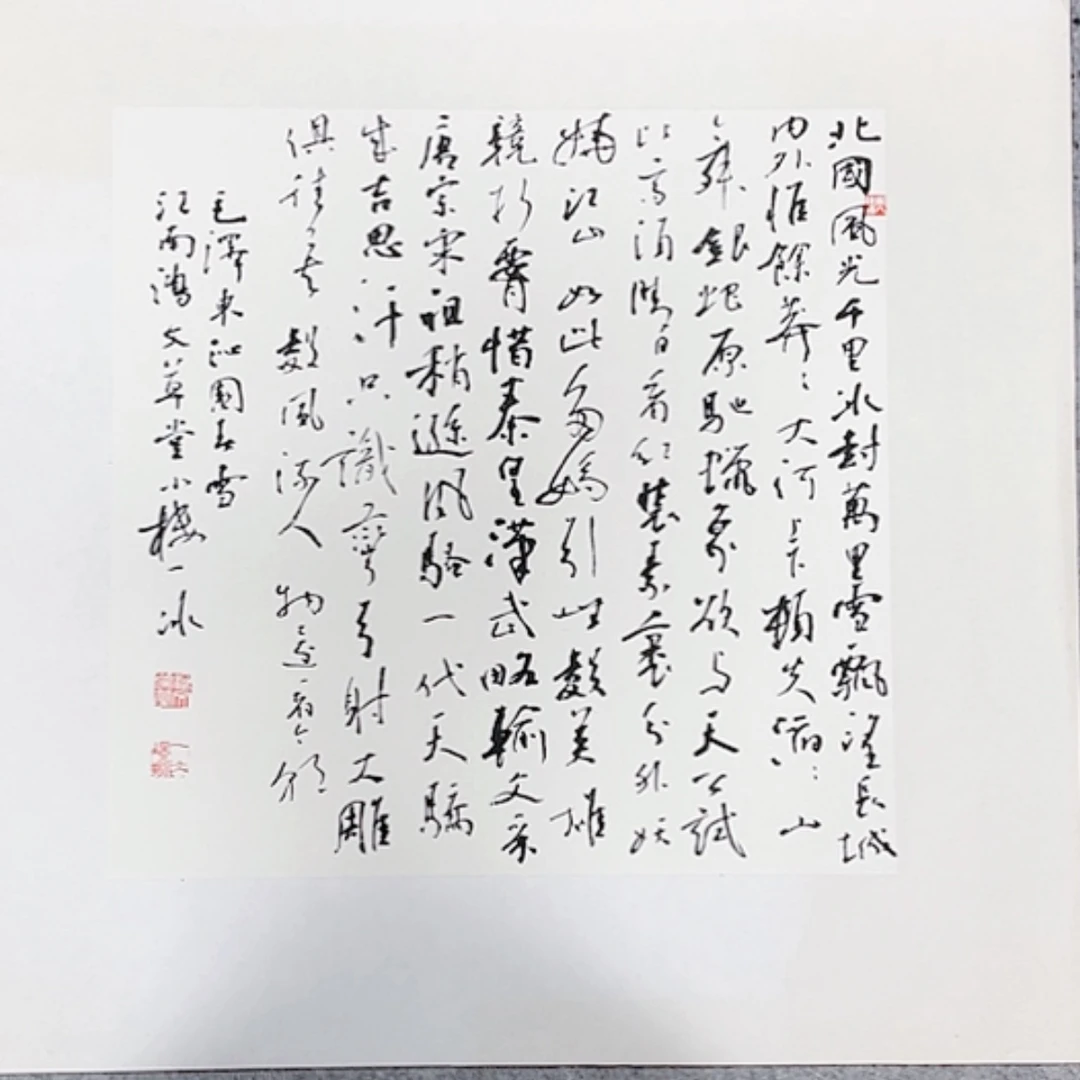 北國風光千里冰封萬里雪飄望長城
内外惟餘莽〻大河上下頓失滔〻山
舞銀蛇原馳蠟象欲与天公試
比高須晴日看紅裝素裹分外妖
嬈江山如此多嬌引無數英雄
競折腰惜秦皇漢武略輸文采
唐宗宋祖稍遜風騷一代天驕
成吉思汗只識彎弓射大雕
俱往矣數風流人物還看今朝
毛澤東沁園春雪
江南鴻文草堂小樓一冰